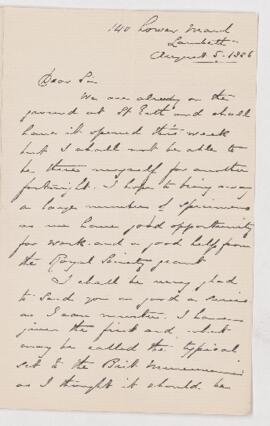 140 Lower Marsh
Lambeth
August 5. 1886
Dear Sir
We are already on the
ground at St Erth and shall
have it opened this week
but I shall not be able to
be there myself for another
fortnight. I hope to bring away
a large number of specimens
as we have good opportunity
for work and a good help from
the Royal Society grant
I shall be very glad
to send you as good a series
as I can muster. I have
given the first and what
may be called the typical
set to the Brit Museum
as I thought it should be